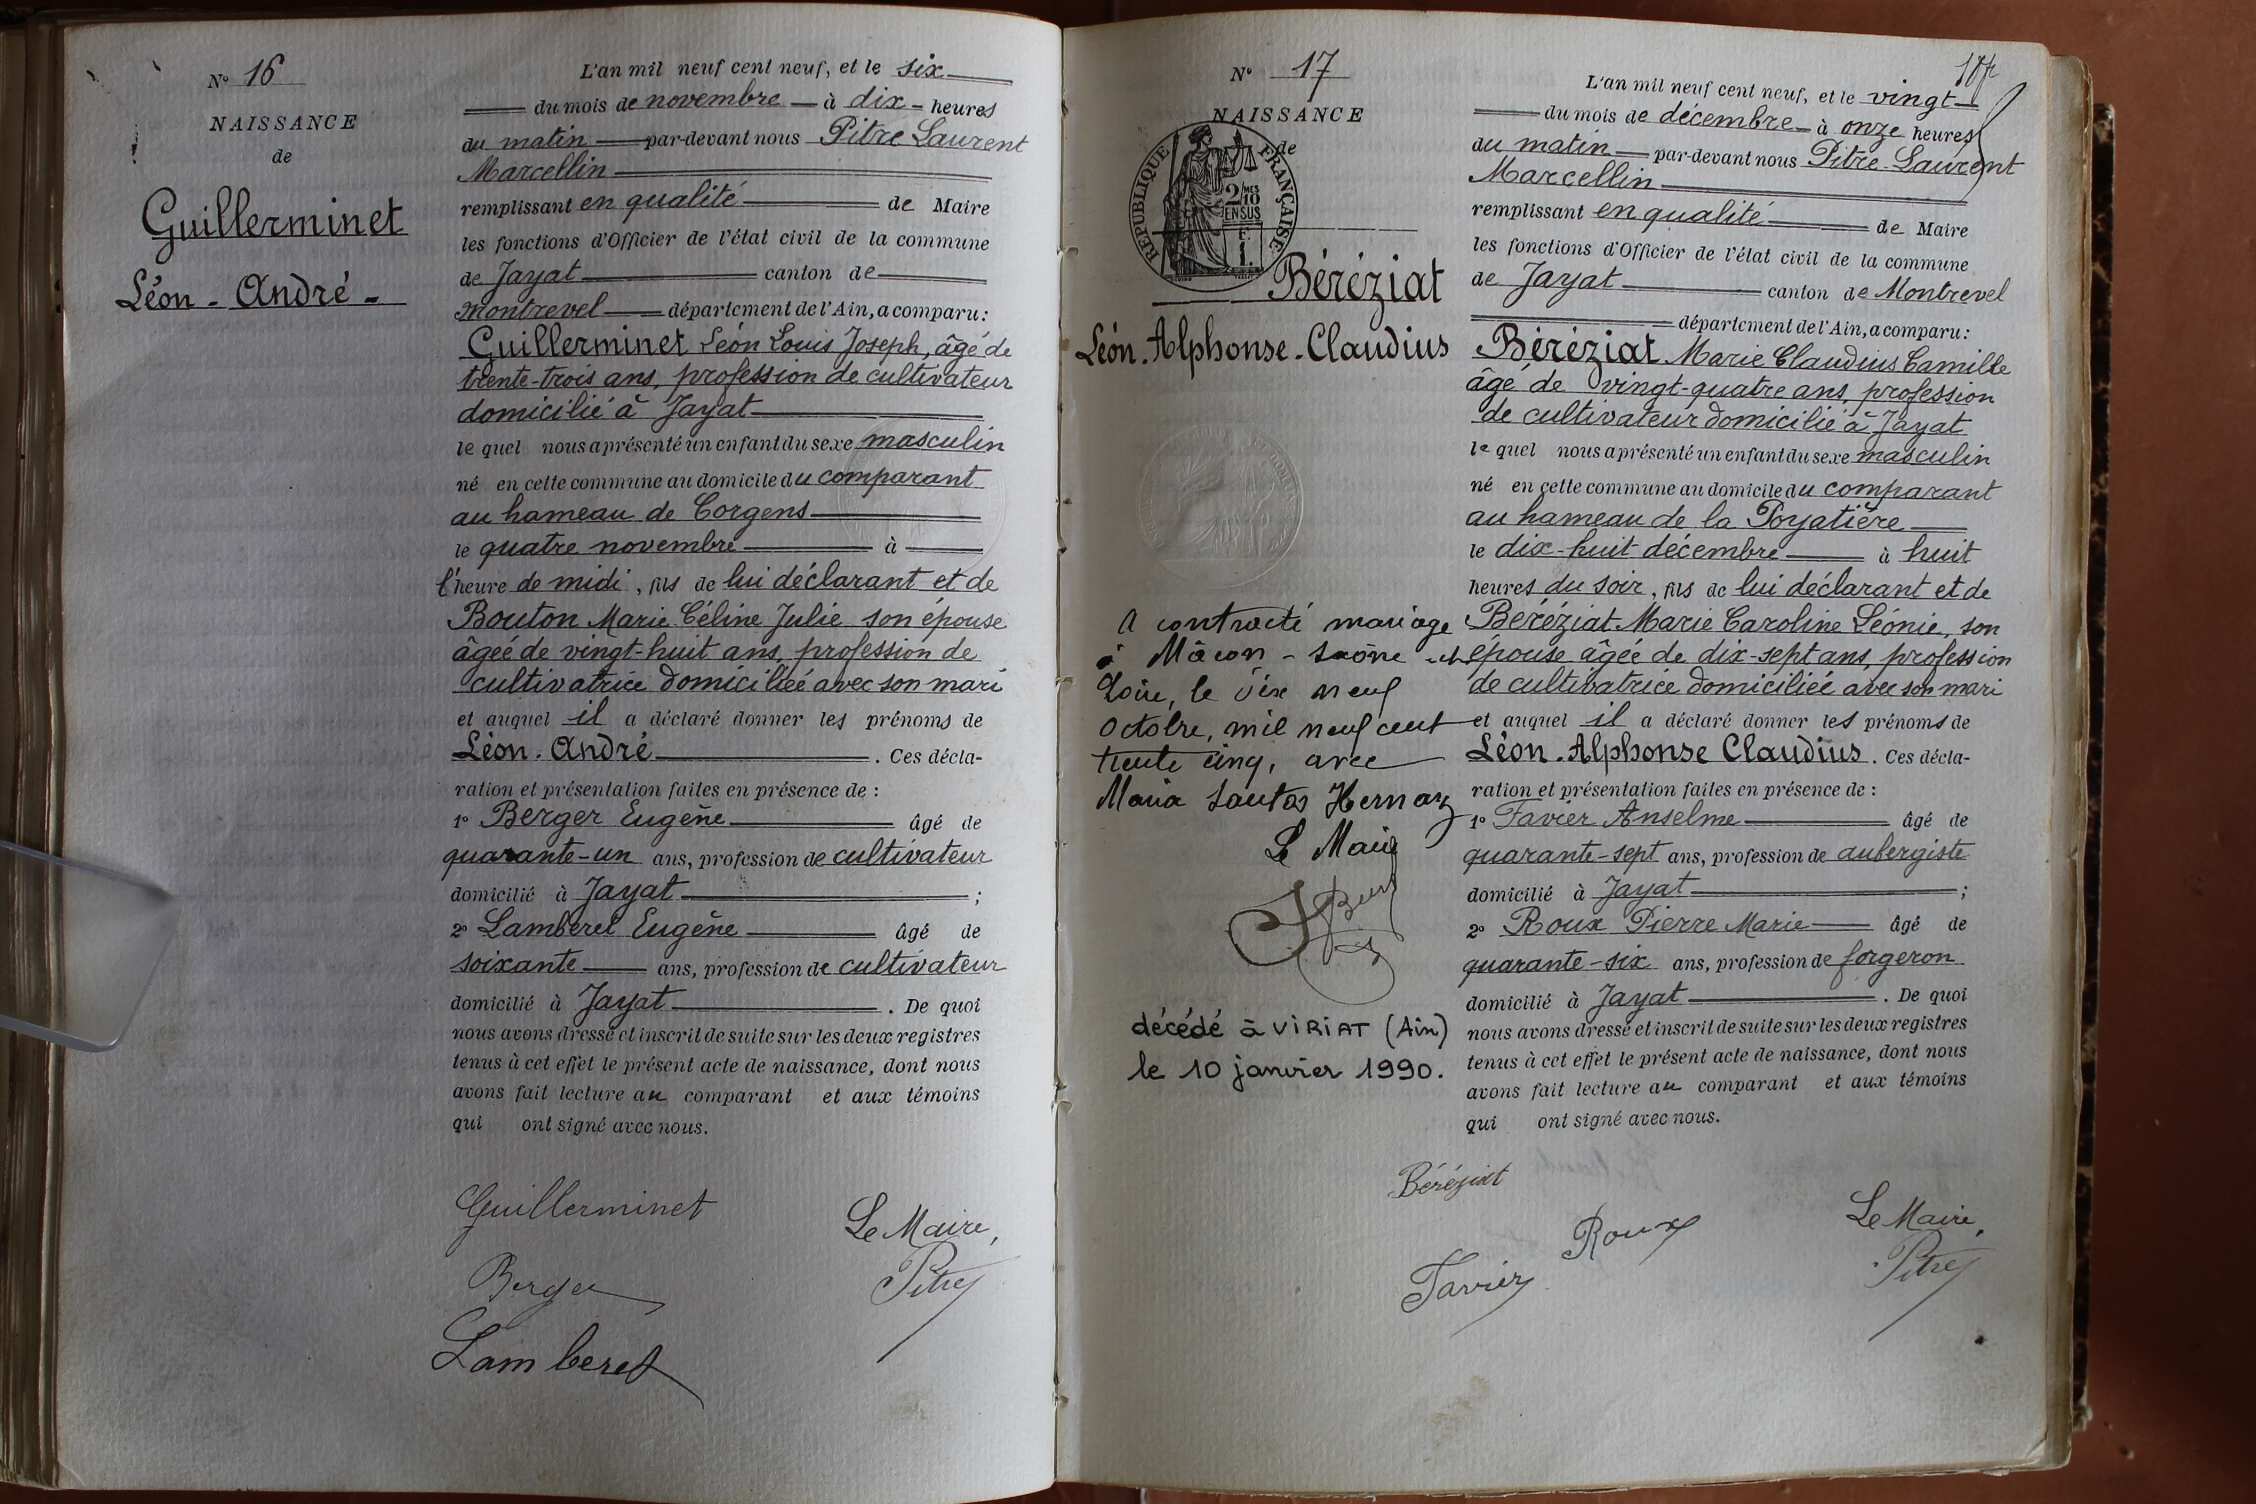 N° 16
NAISSANCE
de
Guillerminet
Léon - André -
L'an mil neuf cent neuf, et le six
du mois de novembre à dix - heures
du matin par-devant nous Pitre Laurent
Marcellin
remplissant en qualité de Maire
les fonctions d'Officier de l'état civil de la commune
de Jayat canton de
Montrevel département de l'Ain, a comparu :
Guillerminet Léon Louis Joseph, âgé de
trente-trois ans, profession de cultivateur
domicilié à Jayat
le quel nous a présenté un enfant du sexe masculin
né en cette commune au domicile du comparant
au hameau de Corgens
le quatre novembre à
l'heure de midi, fils de lui déclarant et de
Bouton Marie Céline Julie son épouse
âgée de vingt-huit ans, profession de
cultivatrice domiciliée avec son mari
et auquel il a déclaré donner les prénoms de
Léon. André. Ces décla-
ration et présentation faites en présence de :
1° Berger Eugène âgé de
quarante-un ans, profession de cultivateur
domicilié à Jayat ;
2° Lamberet Eugène âgé de
soixante ans, profession de cultivateur
domicilié à Jayat. De quoi
nous avons dressé et inscrit de suite sur les deux registres
tenus à cet effet le présent acte de naissance, dont nous
avons fait lecture au comparant et aux témoins
qui ont signé avec nous.
Guillerminet
Le Maire,
Berger
Pitre
Lamberet
N° 17
NAISSANCE
de
RÉPUBLIQUE FRANÇAISE
2/10 MES
EN SUS
1.
Béréziat
Léon. Alphonse - Claudius
A contracté mariage
à Mâcon - Saône et
Loire, le dix neuf
Octobre, mil neuf cent
trente cinq, avec
Maria Santos Hernaz
Le Maire
décédé à VIRIAT (Ain)
le 10 janvier 1990.
L'an mil neuf cent neuf, et le vingt
du mois de décembre à onze heures
du matin par-devant nous Pitre Laurent
Marcellin
remplissant en qualité de Maire
les fonctions d'Officier de l'état civil de la commune
de Jayat canton de Montrevel
département de l'Ain, a comparu :
Béréziat Marie Claudius Camille
âgé de vingt-quatre ans, profession
de cultivateur domicilié à Jayat
le quel nous a présenté un enfant du sexe masculin
né en cette commune au domicile du comparant
au hameau de la Poyatière
le dix-huit décembre à huit
heures du soir, fils de lui déclarant et de
Béréziat Marie Caroline Léonie, son
épouse âgée de dix-sept ans, profession
de cultivatrice domiciliée avec son mari
et auquel il a déclaré donner les prénoms de
Léon. Alphonse Claudius. Ces décla-
ration et présentation faites en présence de :
1° Favier Anselme âgé de
quarante-sept ans, profession de aubergiste
domicilié à Jayat ;
2° Roux Pierre Marie âgé de
quarante-six ans, profession de forgeron
domicilié à Jayat. De quoi
nous avons dressé et inscrit de suite sur les deux registres
tenus à cet effet le présent acte de naissance, dont nous
avons fait lecture au comparant et aux témoins
qui ont signé avec nous.
Béréziat
Roux
Le Maire,
Favier
Pitre